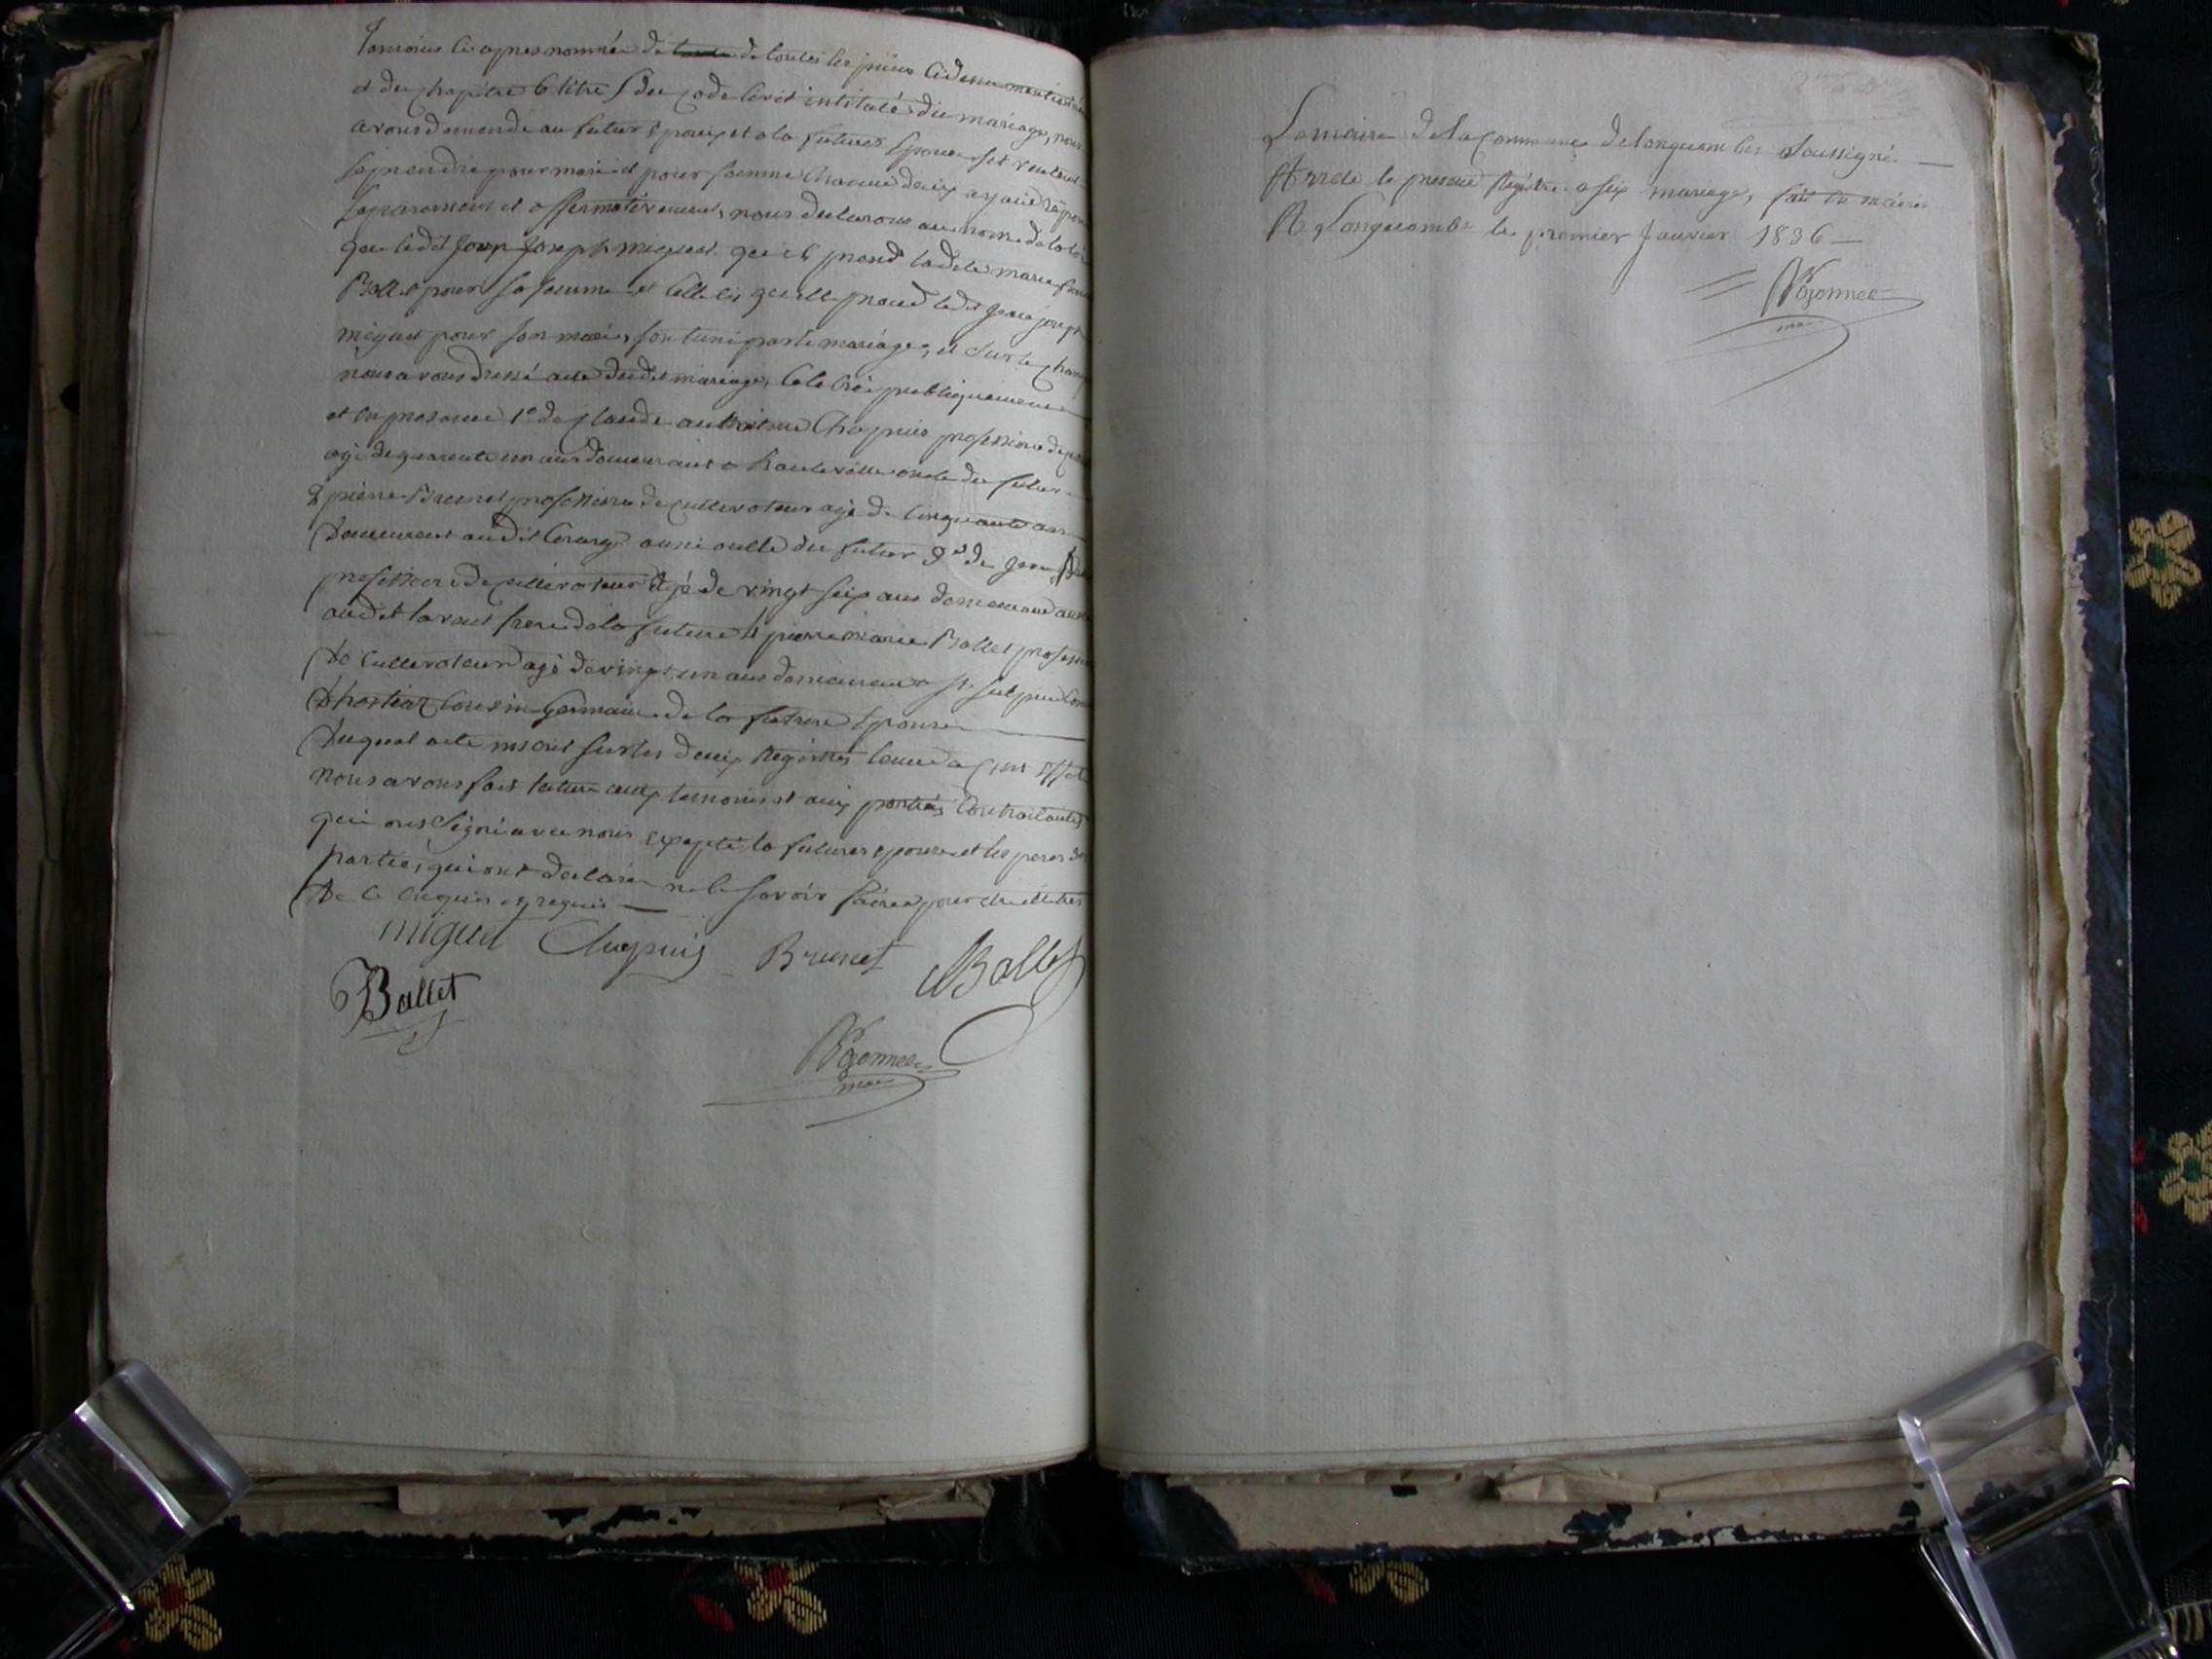 temoins ci apres nommés de toutes les pieces ci dessus mentionnées
et du chapitre 6 titre 5 du code civil intitulé du mariage, nous
avons demandé au futur Epoux et a la future Epouse s'ils veulent
se prendre pour mari et pour femme chacun deux ayant répondu
séparement et affirmativement, nous declarons au nom de la loi
que ledit Jean Joseph miguet qu'il prend ladite marie
Ballet pour sa femme et celle ci quelle prend ledit Jean joseph
miguet pour son mari, sont uni par le mariage, et sur le champ
nous avons dressé acte dudit mariage, célébré publiquement
et en presence 1º de Claude anthelme Chapuis profession de
agé de quarante un ans demeurant a hauteville oncle du futur
2 pierre Brunet profession de cultivateur agé de cinquante ans
demeurant audit aussi oncle du futur 3º de Jean
profession de cultivateur agé de vingt six ans demeurant
audit lavant frere de la future 4 pierre marie Ballet profession
de cultivateur agé de vingt un ans demeurant a St Sulpice
cousin germain de la future Epouse
duquel acte inscrit sur les deux Registres tenus a cet Effet
nous avons fait lecture aux temoins et aux parties contractantes
qui ont Signé avec nous excepté la future epouse et les peres des
parties, qui ont declaré ne le savoir faire pour etre illitres
de ce enquis et requis
miguet Chapuis Brunet Ballet
Ballet
maire
Le maire de la Commune de longecombe Soussigné
Arrete le present Registre a six mariages, fait en mairie
A Longecombe le premier Janvier 1836